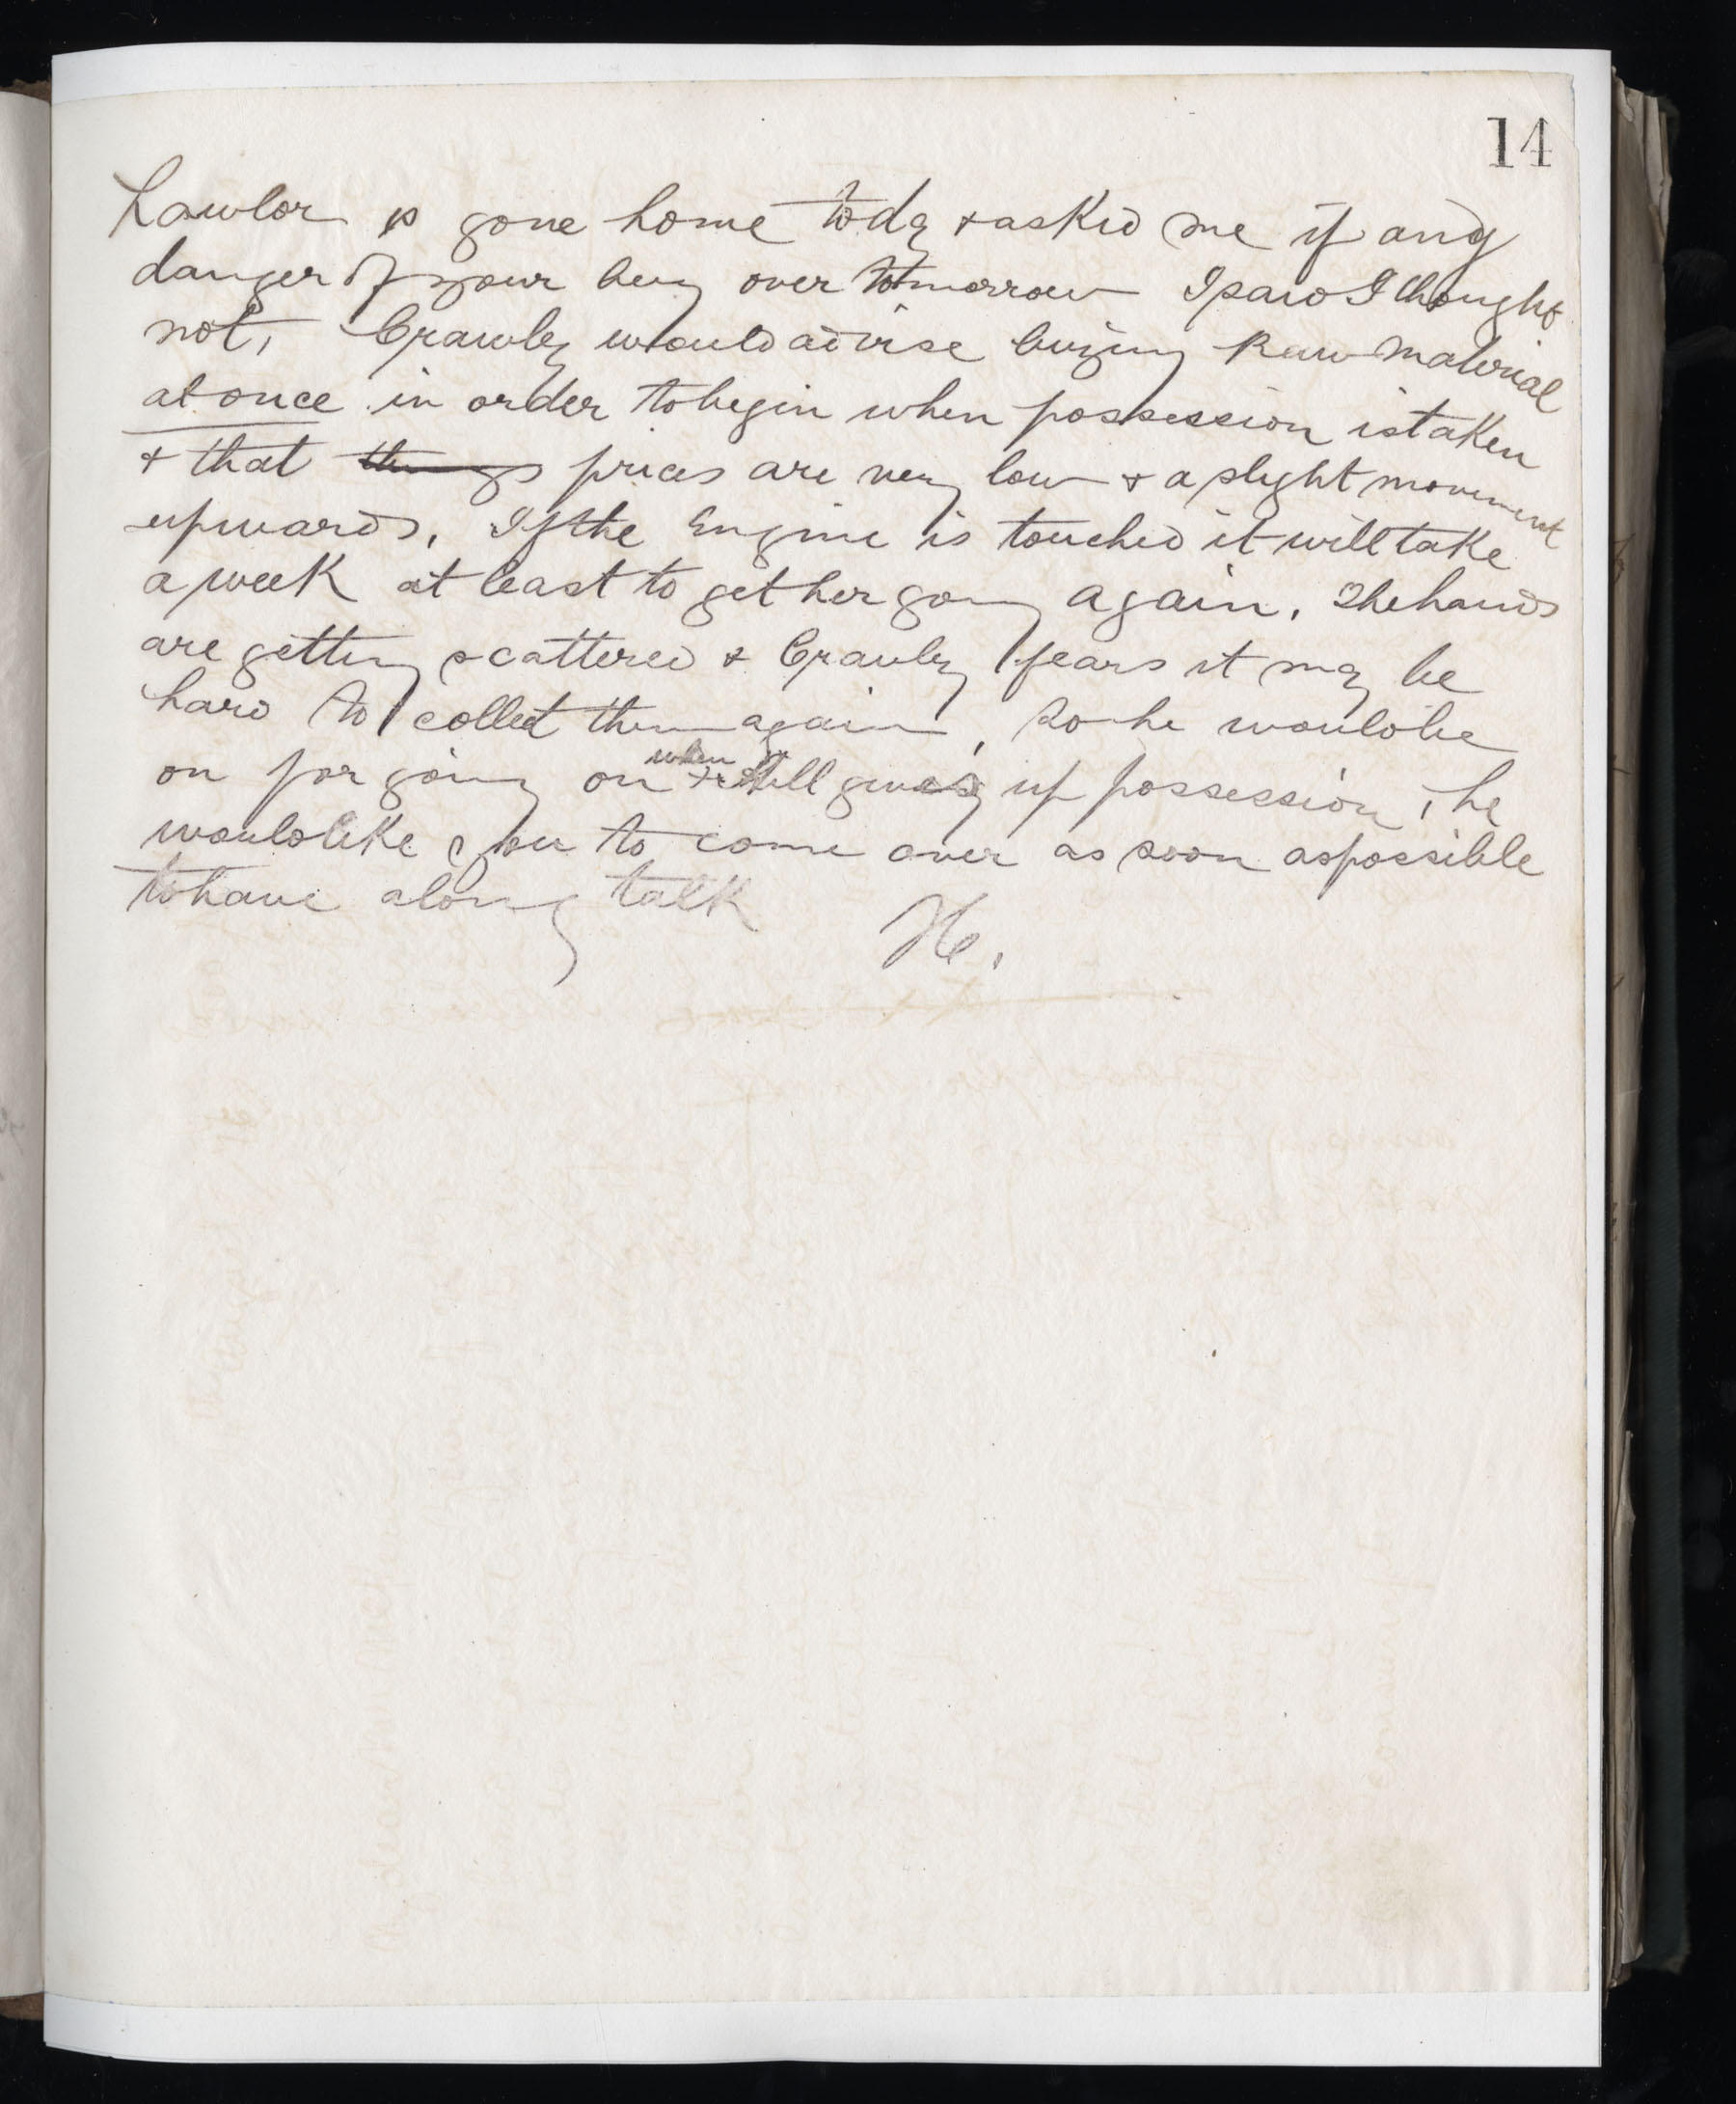 14
Lawlor is gone home today & asked me if any
danger of your being over tomorrow I said I thought
not, Crawley would advise buying Raw Material
at once in order to begin when possession is taken
& that things prices are very low & a slight movement
upwards. If the Engine is touched it will take
a week at least to get her going again. The hands
are getting scattered & Crawley fears it may be
hard to collect them again, so he would be
on for going on when Still gives up possession, he
would like you to come over as soon as possible
to have a long talk
H.